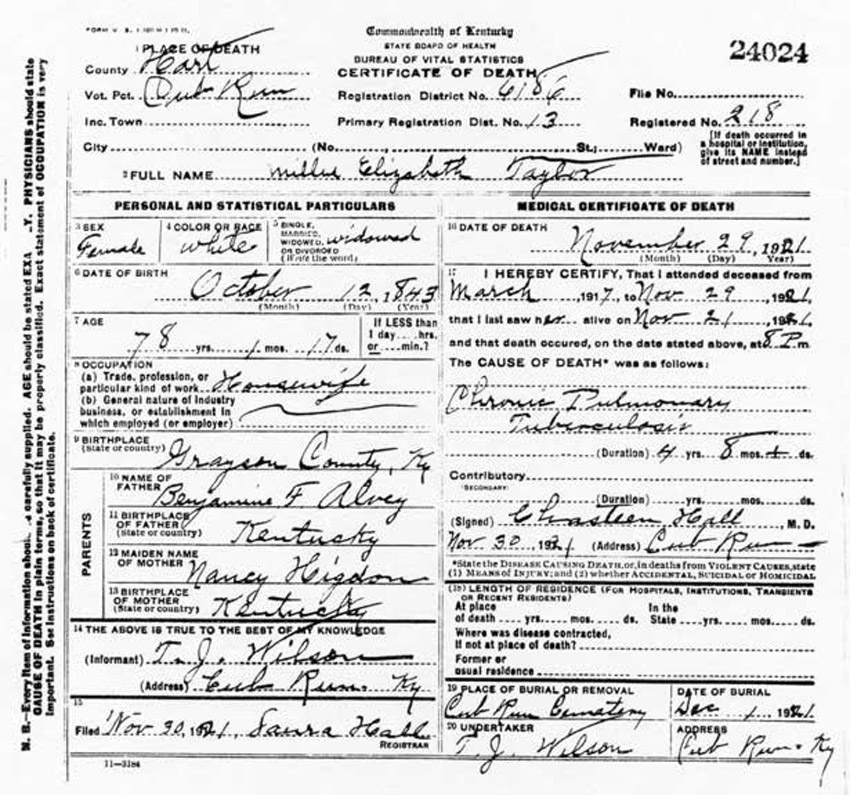 Commonwealth of Kentucky
STATE BOARD OF HEALTH
BUREAU OF VITAL STATISTICS
CERTIFICATE OF DEATH
24024
1 PLACE OF DEATH
County Hart
Vot. Pct. Cub Run
Registration District No. 6186
File No.
Inc. Town
Primary Registration Dist. No. 13
Registered No. 218
City (No. St.; Ward)
(If death occurred in a hospital or institution, give its NAME instead of street and number.)
2 FULL NAME Millie Elizabeth Taylor
PERSONAL AND STATISTICAL PARTICULARS
3 SEX Female
4 COLOR OR RACE white
5 SINGLE, MARRIED, WIDOWED, OR DIVORCED (Write the word) widowed
6 DATE OF BIRTH
October 12, 1843
(Month) (Day) (Year)
7 AGE
78 yrs. 1 mos. 17 ds.
If LESS than 1 day....hrs. or....min.?
8 OCCUPATION
(a) Trade, profession, or particular kind of work Housewife
(b) General nature of Industry business, or establishment in which employed (or employer)
9 BIRTHPLACE (State or country) Grayson County, Ky
PARENTS
10 NAME OF FATHER Benjamine F Alvey
11 BIRTHPLACE OF FATHER (State or country) Kentucky
12 MAIDEN NAME OF MOTHER Nancy Higdon
13 BIRTHPLACE OF MOTHER (State or country) Kentucky
14 THE ABOVE IS TRUE TO THE BEST OF MY KNOWLEDGE
(Informant) T. J. Wilson
(Address) Cub Run Ky
15
Filed Nov 30, 1921, Laura Hall
REGISTRAR
11-3184
MEDICAL CERTIFICATE OF DEATH
16 DATE OF DEATH
November 29, 1921
(Month) (Day) (Year)
17 I HEREBY CERTIFY, That I attended deceased from
March 1917, to Nov 29, 1921
that I last saw her alive on Nov 21, 1921.
and that death occured, on the date stated above, at 8 P.m
The CAUSE OF DEATH* was as follows:
Chronic Pulmonary
Tuberculosis
(Duration) 4 yrs. 8 mos. ds.
Contributory
(SECONDARY)
(Duration) yrs. mos. ds.
(Signed) Chasteen Hall M. D.
Nov 30, 1921 (Address) Cub Run
*State the DISEASE CAUSING DEATH, or, in deaths from VIOLENT CAUSES, state
(1) MEANS OF INJURY; and (2) whether ACCIDENTAL, SUICIDAL or HOMICIDAL
(18) LENGTH OF RESIDENCE (FOR HOSPITALS, INSTITUTIONS, TRANSIENTS OR RECENT RESIDENTS)
At place of death yrs. mos. ds. In the State yrs. mos. ds.
Where was disease contracted,
If not at place of death?
Former or usual residence
19 PLACE OF BURIAL OR REMOVAL
Cub Run Cemetery
DATE OF BURIAL
Dec 1, 1921
20 UNDERTAKER
T. J. Wilson
ADDRESS
Cub Run Ky
N. B.—Every item of information shoul carefully supplied. AGE should be stated EXA Y. PHYSICIANS should state
CAUSE OF DEATH in plain terms, so that it may be properly classified. Exact statement of OCCUPATION is very
important. See instructions on back of certificate.